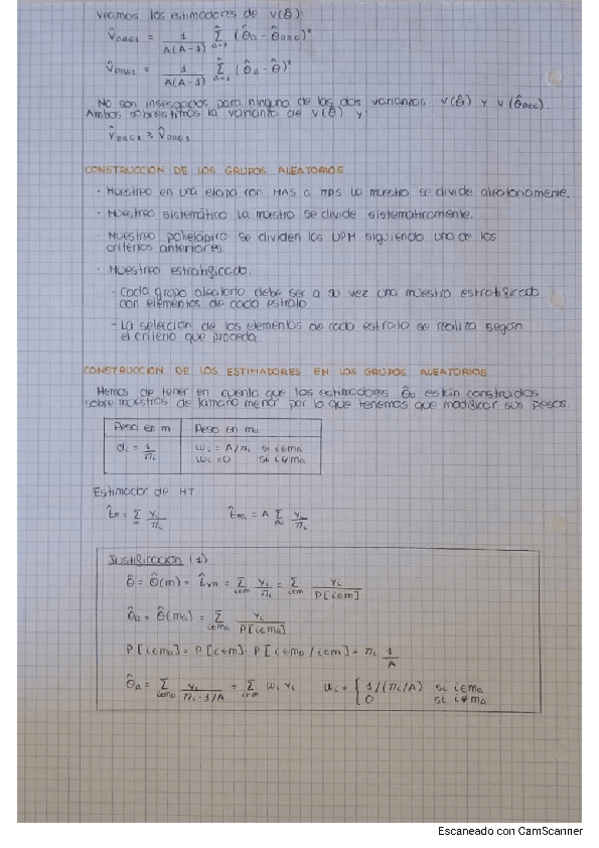 veamos los estimadores de V(θ̂):
V̂_DAG2 = 1/A(A-1) Σ_{a=1}^{A} (θ̂a - θ̂_DAG)²
V̂_DAG2 = 1/A(A-1) Σ_{a=1}^{A} (θ̂a - θ̂)²
No son insesgados para ninguna de las dos varianzas V(θ̂) y V(θ̂_DAG).
Ambos sobrestiman la varianza de V(θ̂) y:
CONSTRUCCIÓN DE LOS GRUPOS ALEATORIOS
· Muestreo en una etapa con MAS o πPS la muestra se divide aleatoriamente.
· Muestreo sistemático la muestra se divide sistemáticamente.
· Muestreo polietápico se dividen las UPM siguiendo uno de los
criterios anteriores.
· Muestreo estratificado:
- Cada grupo aleatorio debe ser a su vez una muestra estratificada
con elementos de cada estrato.
- La selección de los elementos de cada estrato se realiza según
el criterio que proceda.
CONSTRUCCIÓN DE LOS ESTIMADORES EN LOS GRUPOS ALEATORIOS
Hemos de tener en cuenta que los estimadores θ̂a están construidos
sobre muestras de tamaño menor por lo que tenemos que modificar sus pesos.
Peso en m Peso en ma
di = 1/πi wi = A/πi si i∈ma
wi = 0 si i∉ma
Estimador de HT
t̂m = Σ_m yi/πi t̂ma = A Σ_ma yi/πi
Justificación (1)
θ̂ = θ̂(m) = t̂yπ = Σ_{i∈m} yi/πi = Σ_{i∈m} yi/P[i∈m]
θ̂a = θ̂(ma) = Σ_{i∈ma} yi/P[i∈ma]
P[i∈ma] = P[i∈m] · P[i∈ma / i∈m] = πi 1/A
θ̂a = Σ_{i∈ma} yi/πi·1/A = Σ_{i∈m} wi yi wi = { 1/(πi/A) si i∈ma
0 si i∉ma
Escaneado con CamScanner